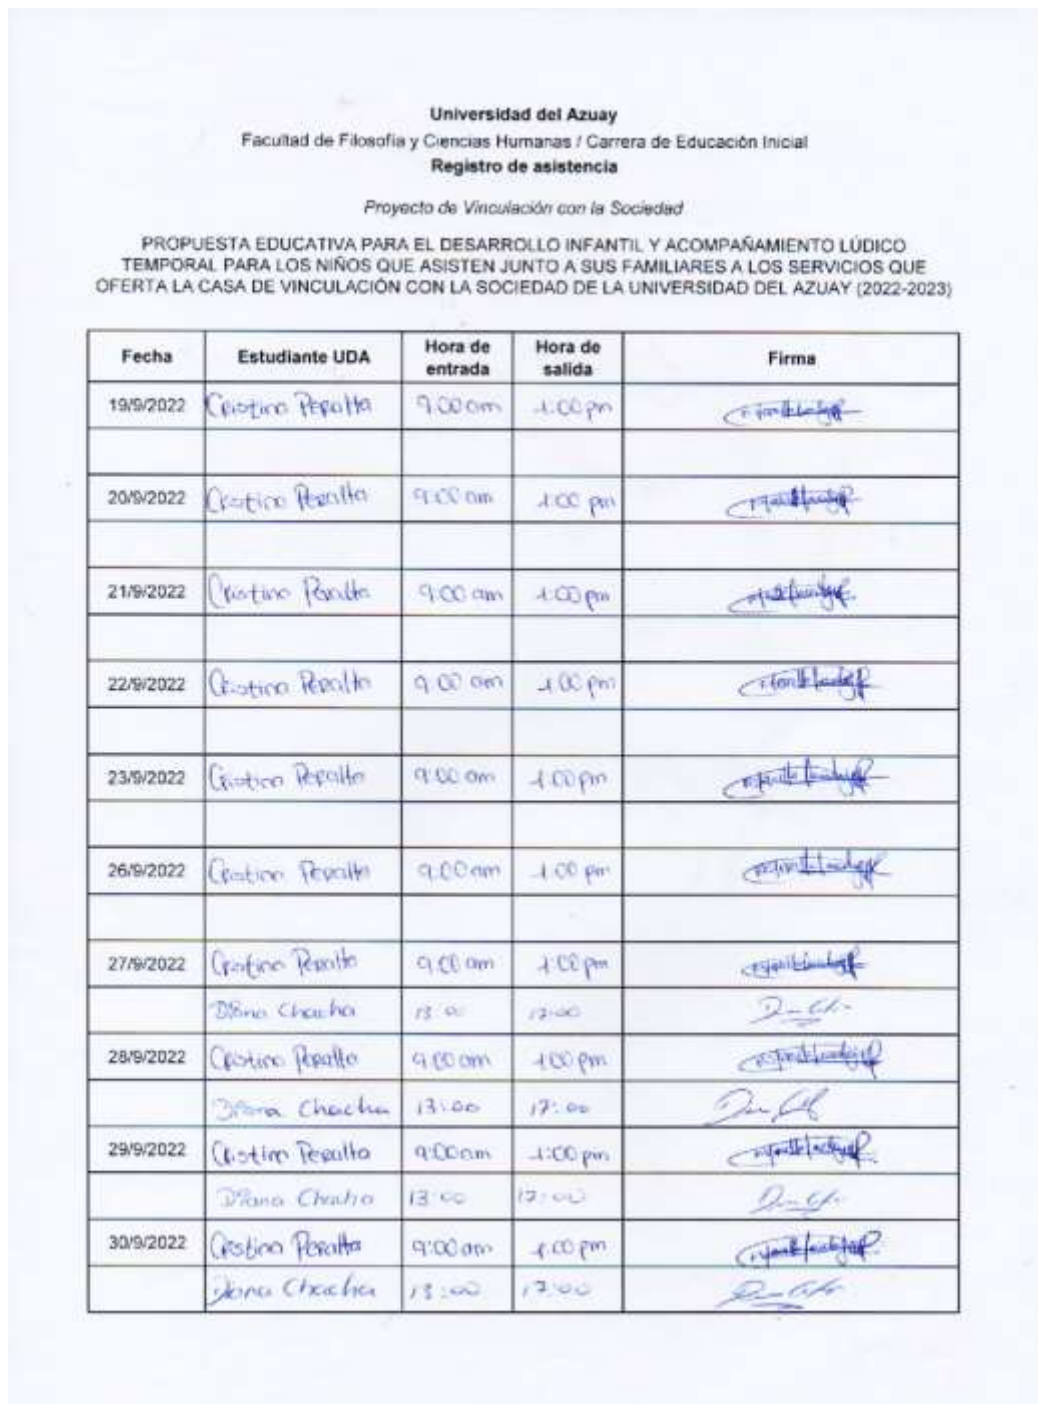 Universidad del Azuay
Facultad de Filosofía y Ciencias Humanas / Carrera de Educación Inicial
Registro de asistencia
Proyecto de Vinculación con la Sociedad
PROPUESTA EDUCATIVA PARA EL DESARROLLO INFANTIL Y ACOMPAÑAMIENTO LÚDICO
TEMPORAL PARA LOS NIÑOS QUE ASISTEN JUNTO A SUS FAMILIARES A LOS SERVICIOS QUE
OFERTA LA CASA DE VINCULACIÓN CON LA SOCIEDAD DE LA UNIVERSIDAD DEL AZUAY (2022-2023)
Fecha Estudiante UDA Hora de entrada Hora de salida Firma
19/9/2022 Cristina Peralta 9:00 am 1:00 pm
20/9/2022 Cristina Peralta 9:00 am 1:00 pm
21/9/2022 Cristina Peralta 9:00 am 1:00 pm
22/9/2022 Cristina Peralta 9:00 am 1:00 pm
23/9/2022 Cristina Peralta 9:00 am 1:00 pm
26/9/2022 Cristina Peralta 9:00 am 1:00 pm
27/9/2022 Cristina Peralta 9:00 am 1:00 pm
Diana Chacha 13:00 17:00
28/9/2022 Cristina Peralta 9:00 am 1:00 pm
Diana Chacha 13:00 17:00
29/9/2022 Cristina Peralta 9:00 am 1:00 pm
Diana Chacha 13:00 17:00
30/9/2022 Cristina Peralta 9:00 am 1:00 pm
Diana Chacha 13:00 17:00